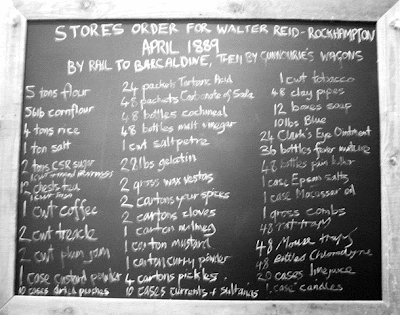 STORES ORDER FOR WALTER REID - ROCKHAMPTON
APRIL 1889
BY RAIL TO BARCALDINE, THEN BY WAGONS
5 tons flour
56lb cornflour
4 tons rice
1 ton salt
2 tons CSR sugar
1 cwt
12 chests tea
1 cwt
1 cwt coffee
2 cwt treacle
2 cwt plum jam
1 case custard powder
10 cases dried peaches
24 packets Tartaric Acid
48 packets Carbonate of Soda
48 bottles cochineal
48 bottles malt vinegar
1 cwt saltpetre
28lbs gelatin
2 gross wax vestas
2 cartons spices
2 cartons cloves
1 carton nutmeg
1 carton mustard
1 carton curry powder
4 cartons pickles
10 cases currents + sultanas
1 cwt tobacco
48 clay pipes
12 boxes soap
10lbs Blue
24 Clark's Eye Ointment
36 bottles fever mixture
48 bottles pain killer
1 case Epsom salts
1 case Macassar oil
1 gross combs
48 rat traps
48 Mouse traps
48 Bottles Chlorodyne
20 cases limejuice
1 case candles